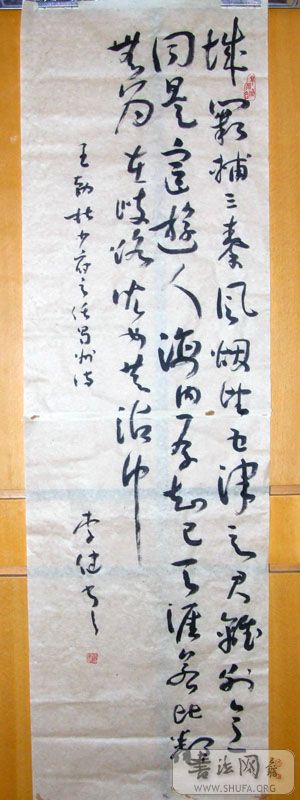 城闕輔三秦風烟望五津与君離别意
同是宦遊人海内存知己天涯若比鄰
無为在歧路儿女共沾巾
王勃杜少府之任蜀州诗
李健书
書法网
WWW.SHUFA.ORG